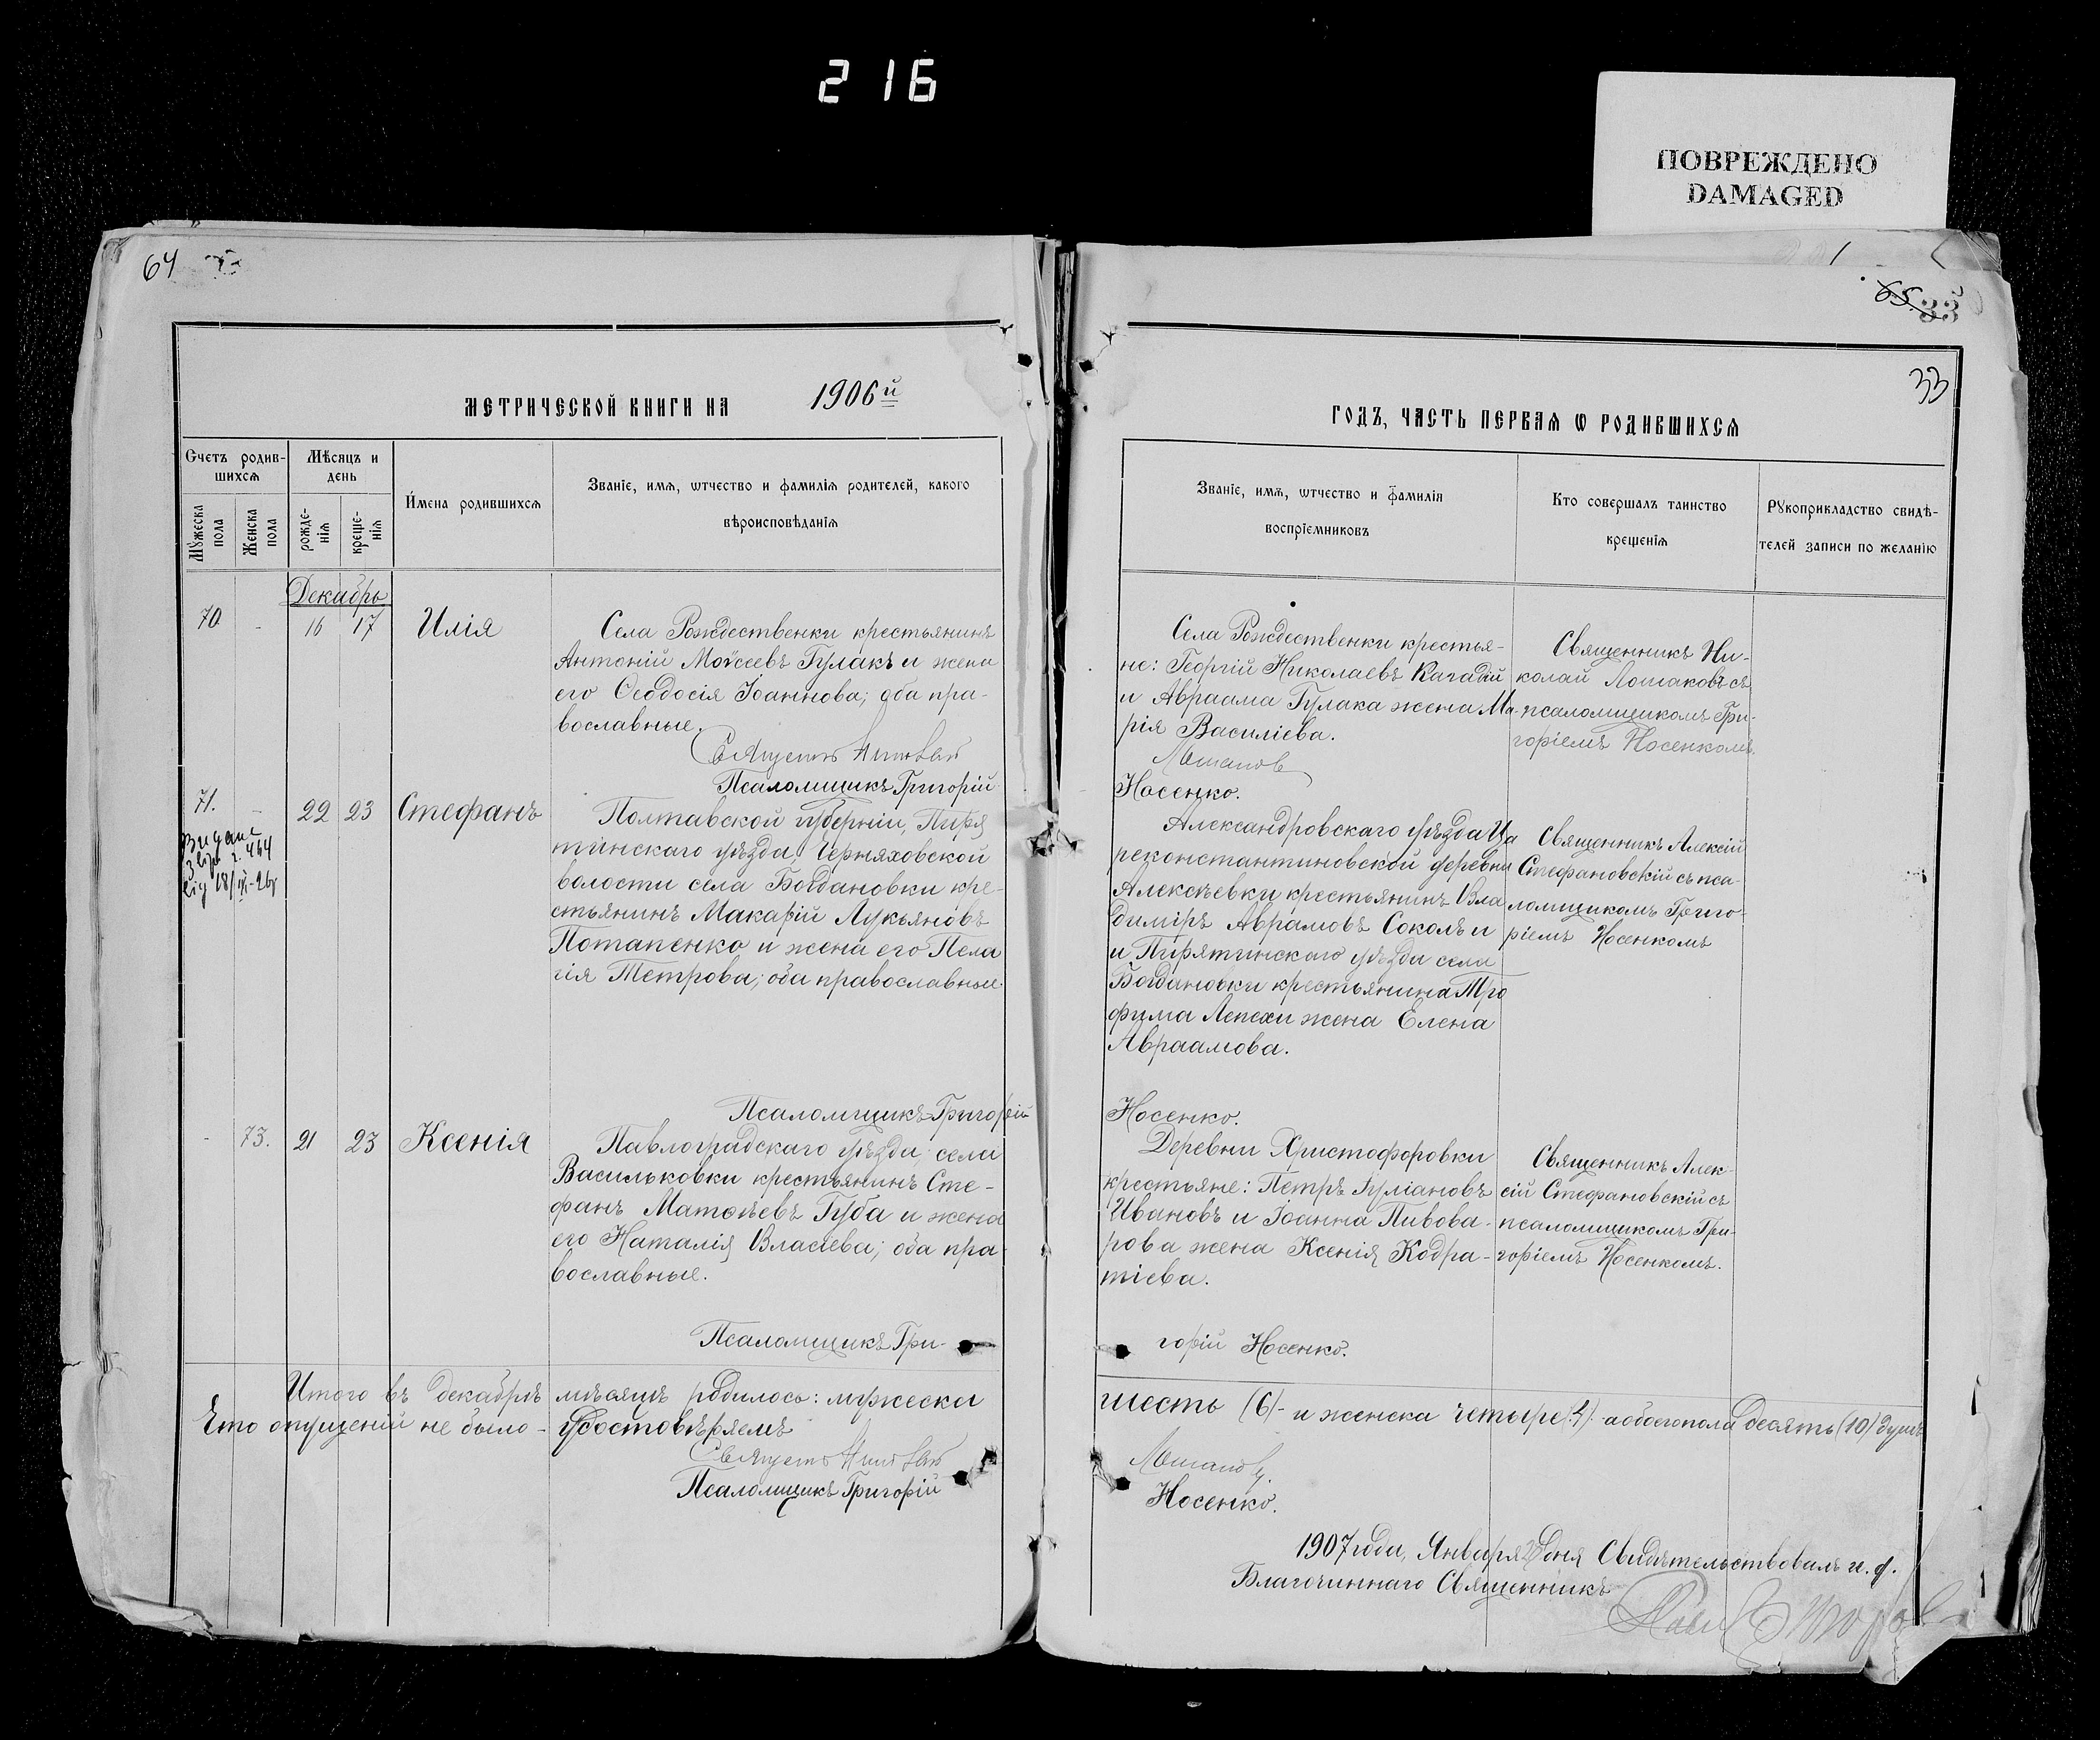 216
ПОВРЕЖДЕНО
DAMAGED
64
65
33
33
МЕТРИЧЕСКОЙ КНИГИ НА 1906й
ГОДЪ, ЧАСТЬ ПЕРВАЯ Ѡ РОДИВШИХСѦ
Счетъ родив-
шихсѧ
Мѣсяцъ и
день
Мужеска
пола
Женска
пола
рожде-
нія
креще-
нія
Имена родившихсѧ
Званіе, имѧ, ѡтчество и фамиліѧ родителей, какого
вѣроисповѣданіѧ
Званіе, имѧ, ѡтчество и фамиліѧ
воспріемниковъ
Кто совершалъ таинство
крещеніѧ
Рукоприкладство свидѣ-
телей записи по желанію
Декабрь
70 - 16 17 Илія
Села Рождественки крестьянинъ
Антоній Моѵсеевъ Гулакъ и жена
его Ѳеодосія Іоаннова; оба пра-
вославные.
Псаломщикъ Григорій
Села Рождественки крестья-
не: Георгій Николаевъ Кагадій
и Авраама Гулака жена Ма-
рія Василіева.
Носенко.
Священникъ Ни-
колай Лошаковъ съ
псаломщикомъ Гри-
горіемъ Носенкомъ.
71. - 22 23 Стефанъ
464
Полтавской губерніи, Пиря
тинскаго уѣзда, Черняховской
волости села Богдановки кре-
стьянинъ Макарій Лукьяновъ
Потапенко и жена его Пела
гія Петрова; оба православные
Псаломщикъ Григорій
Александровскаго уѣзда Ца
реконстантиновской деревни
Алексѣевки крестьянинъ Вла
диміръ Аврамовъ Соколъ и
и Пирятинскаго уѣзда села
Богдановки крестьянина Тро
фима Лепехи жена Елена
Авраамова.
Носенко.
Священникъ Алексій
Стефановскій съ пса-
ломщикомъ Григо-
ріемъ Носенкомъ
- 73. 21 23 Ксенія
Павлоградскаго уѣзда, села
Васильковки крестьянинъ Сте-
фанъ Матѳѣевъ Губа и жена
его Наталія Власіева; оба пра-
вославные.
Псаломщикъ Гри-
Деревни Христофоровки
крестьяне: Петръ Іуліановъ
Ивановъ и Іоанна Пивова-
рова жена Ксенія Кодра-
тіева.
горій Носенко.
Священникъ Алек-
сій Стефановскій съ
псаломщикомъ Гри-
горіемъ Носенкомъ.
Итого въ декабрѣ мѣсяцѣ родилось: мужеска шесть (6) и женска четыре (4) а обоего пола десять (10) душъ
Что опущеній не было - удостовѣряемъ
Псаломщикъ Григорій
Носенко.
1907 года, Января дня Свидѣтельствовалъ и. д.
Благочиннаго Священникъ